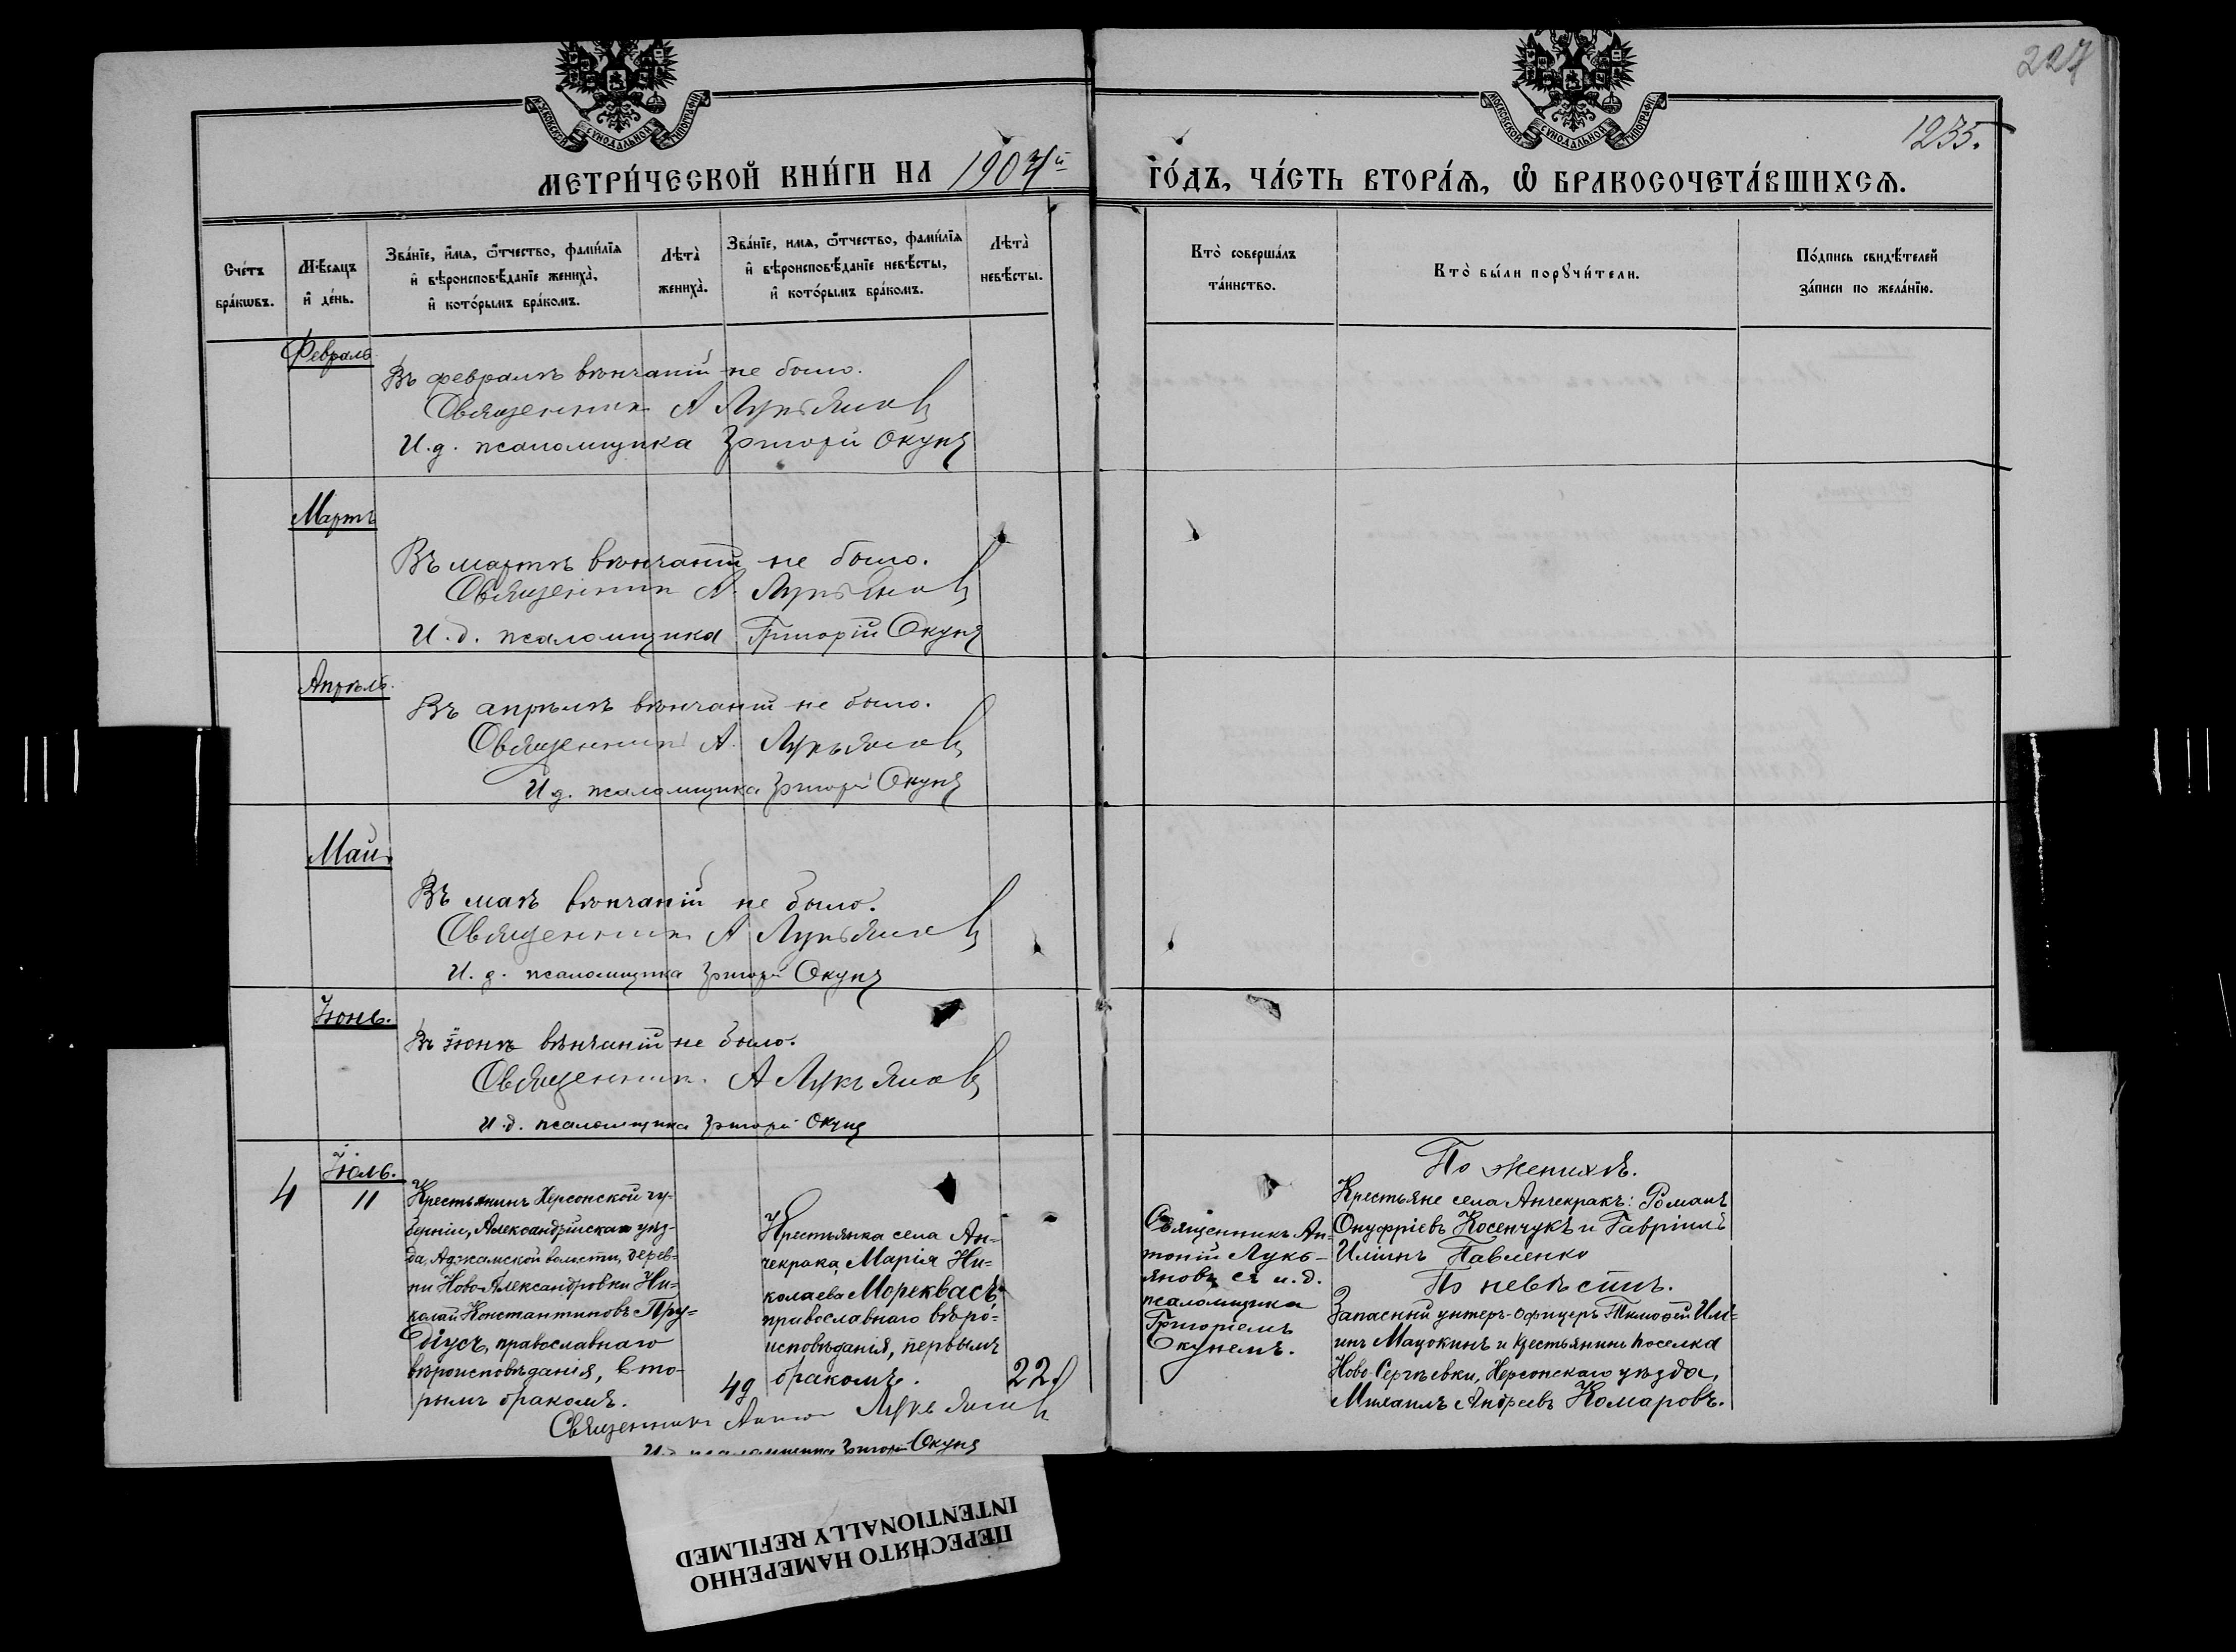 227
1235.
МОСКОВСКОЙ СѴНОДАЛЬНОЙ ТИПОГРАФІИ
МОСКОВСКОЙ СѴНОДАЛЬНОЙ ТИПОГРАФІИ
МЕТРИ́ЧЕСКОЙ КНИ́ГИ НА 1904й
ГО́ДЪ, ЧА́СТЬ ВТОРА́Ѧ, Ѽ БРАКОСОЧЕТА́ВШИХСѦ.
Сче́тъ
бра́кѡвъ.
Мѣ́сѧцъ
и҆ де́нь.
Зва́нїе, и҆́мѧ, ѻ҆́тчество, фами́лїѧ
и҆ вѣроисповѣ́данїе жениха̀,
и҆ кото́рымъ бра́комъ.
Лѣта̀
жениха̀.
Зва́нїе, и҆мѧ, ѻ҆́тчество, фами́лїѧ
и҆ вѣроисповѣ́данїе невѣ́сты,
и҆ кото́рымъ бра́комъ.
Лѣта̀
невѣ́сты.
Кто̀ соверша́лъ
та́инство.
Кто̀ бы́ли порꙋчи́тели.
По́дпись свидѣ́телей
за́писи по жела́нїю.
Февраль
Въ февралѣ вѣнчаній не было.
Священникъ А Лукьянов
И.д. псаломщика Григорій Окунь
Мартъ
Въ мартѣ вѣнчаній не было.
Священникъ А. Лукьянов
И.д. псаломщика Григорій Окунь
Апрѣль.
Въ апрѣлѣ вѣнчаній не было.
Священникъ А. Лукьянов
И.д. псаломщика Григорій Окунь
Май.
Въ маѣ вѣнчаній не было.
Священникъ А Лукьянов
И.д. псаломщика Григорій Окунь
Іюнь.
Въ іюнѣ вѣнчаній не было.
Священникъ. А Лукьянов
И.д. псаломщика Григорій Окунь
Іюль.
4
11
Крестьянинъ Херсонской гу-
берніи, Александрійскаго уѣз-
да, Аджамской волости, дерев-
ни Ново-Александровки Ни-
колай Константиновъ Пру-
діусъ, православнаго
вѣроисповѣданія, вто-
рымъ бракомъ.
49
Крестьянка села Ан-
чекрака, Марія Ни-
колаева Мореквасъ
православнаго вѣро-
исповѣданія, первымъ
бракомъ.
22.
Священникъ Антоній Лукьянов
И.д. псаломщика Григорій Окунь
Священникъ Ан-
тоній Лукь-
яновъ съ и.д.
псаломщика
Григоріемъ
Окунемъ.
По женихѣ.
Крестьяне села Анчекракъ: Романъ
Онуфріевъ Косенчукъ и Гавріилъ
Ильинъ Павленко
По невѣстѣ.
Запасный унтеръ-офицеръ Тимофей Иль-
инъ Мацокинъ и крестьянинъ поселка
Ново-Сергѣевки, Херсонскаго уѣзда,
Михаилъ Андреевъ Комаровъ.
ПЕРЕСНЯТО НАМЕРЕННО
INTENTIONALLY REFILMED